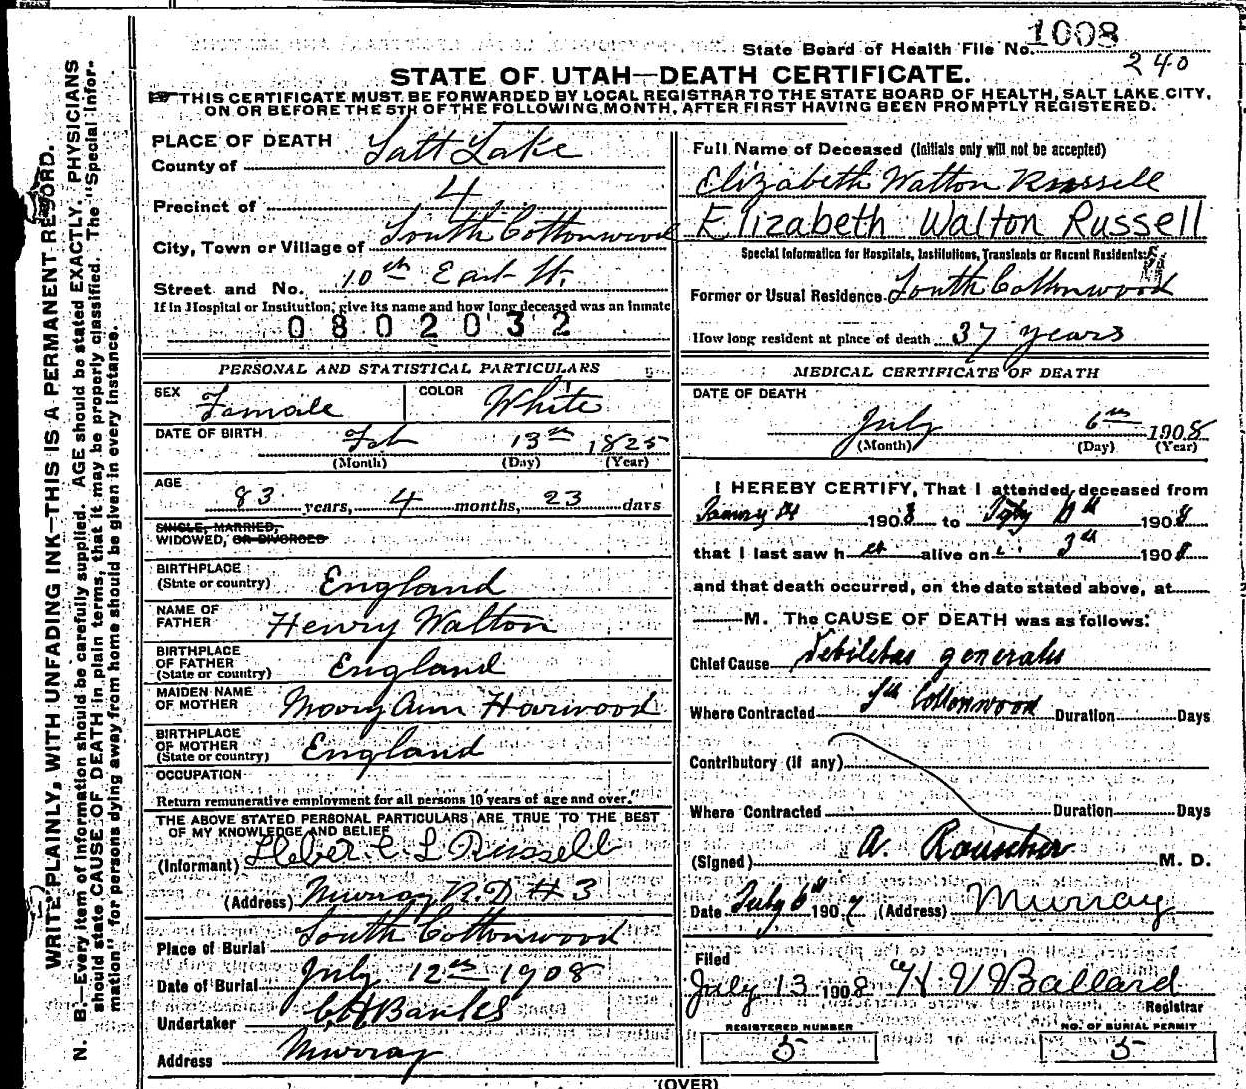 State Board of Health File No. 1008
240
STATE OF UTAH—DEATH CERTIFICATE.
THIS CERTIFICATE MUST BE FORWARDED BY LOCAL REGISTRAR TO THE STATE BOARD OF HEALTH, SALT LAKE CITY,
ON OR BEFORE THE 5TH OF THE FOLLOWING MONTH, AFTER FIRST HAVING BEEN PROMPTLY REGISTERED.
WRITE PLAINLY, WITH UNFADING INK—THIS IS A PERMANENT RECORD.
N. B.—Every item of information should be carefully supplied. AGE should be stated EXACTLY. PHYSICIANS
should state CAUSE OF DEATH in plain terms, that it may be properly classified. The "Special Infor-
mation" for persons dying away from home should be given in every instance.
PLACE OF DEATH
County of Salt Lake
Precinct of 4
City, Town or Village of South Cottonwood
Street and No. 10th East St.
If in Hospital or Institution, give its name and how long deceased was an inmate
0802032
PERSONAL AND STATISTICAL PARTICULARS
SEX Female COLOR White
DATE OF BIRTH Feb 13th 1825
(Month) (Day) (Year)
AGE
83 years, 4 months, 23 days
SINGLE, MARRIED,
WIDOWED, OR DIVORCED
BIRTHPLACE
(State or country) England
NAME OF
FATHER Henry Walton
BIRTHPLACE
OF FATHER
(State or country) England
MAIDEN NAME
OF MOTHER Mary Ann Harwood
BIRTHPLACE
OF MOTHER
(State or country) England
OCCUPATION
Return remunerative employment for all persons 10 years of age and over.
THE ABOVE STATED PERSONAL PARTICULARS ARE TRUE TO THE BEST
OF MY KNOWLEDGE AND BELIEF
(Informant) Heber C L Russell
(Address) Murray R.D # 3
Place of Burial South Cottonwood
Date of Burial July 12th 1908
Undertaker Banks
Address Murray
Full Name of Deceased (Initials only will not be accepted)
Elizabeth Walton Russell
Elizabeth Walton Russell
Special Information for Hospitals, Institutions, Transients or Recent Residents:
Former or Usual Residence South Cottonwood
How long resident at place of death 37 years
MEDICAL CERTIFICATE OF DEATH
DATE OF DEATH
July 6th 1908
(Month) (Day) (Year)
I HEREBY CERTIFY, That I attended deceased from
1908 to July 6th 1908
that I last saw her alive on 3d 1908
and that death occurred, on the date stated above, at
M. The CAUSE OF DEATH was as follows:
Chief Cause Debilitas generalis
Where Contracted Sth Cottonwood Duration Days
Contributory (if any)
Where Contracted Duration Days
(Signed) A. Rauscher M. D.
Date July 6th 1907 (Address) Murray
Filed
July 13 1908 H V Ballard
Registrar
REGISTERED NUMBER
5
NO. OF BURIAL PERMIT
5
(OVER)